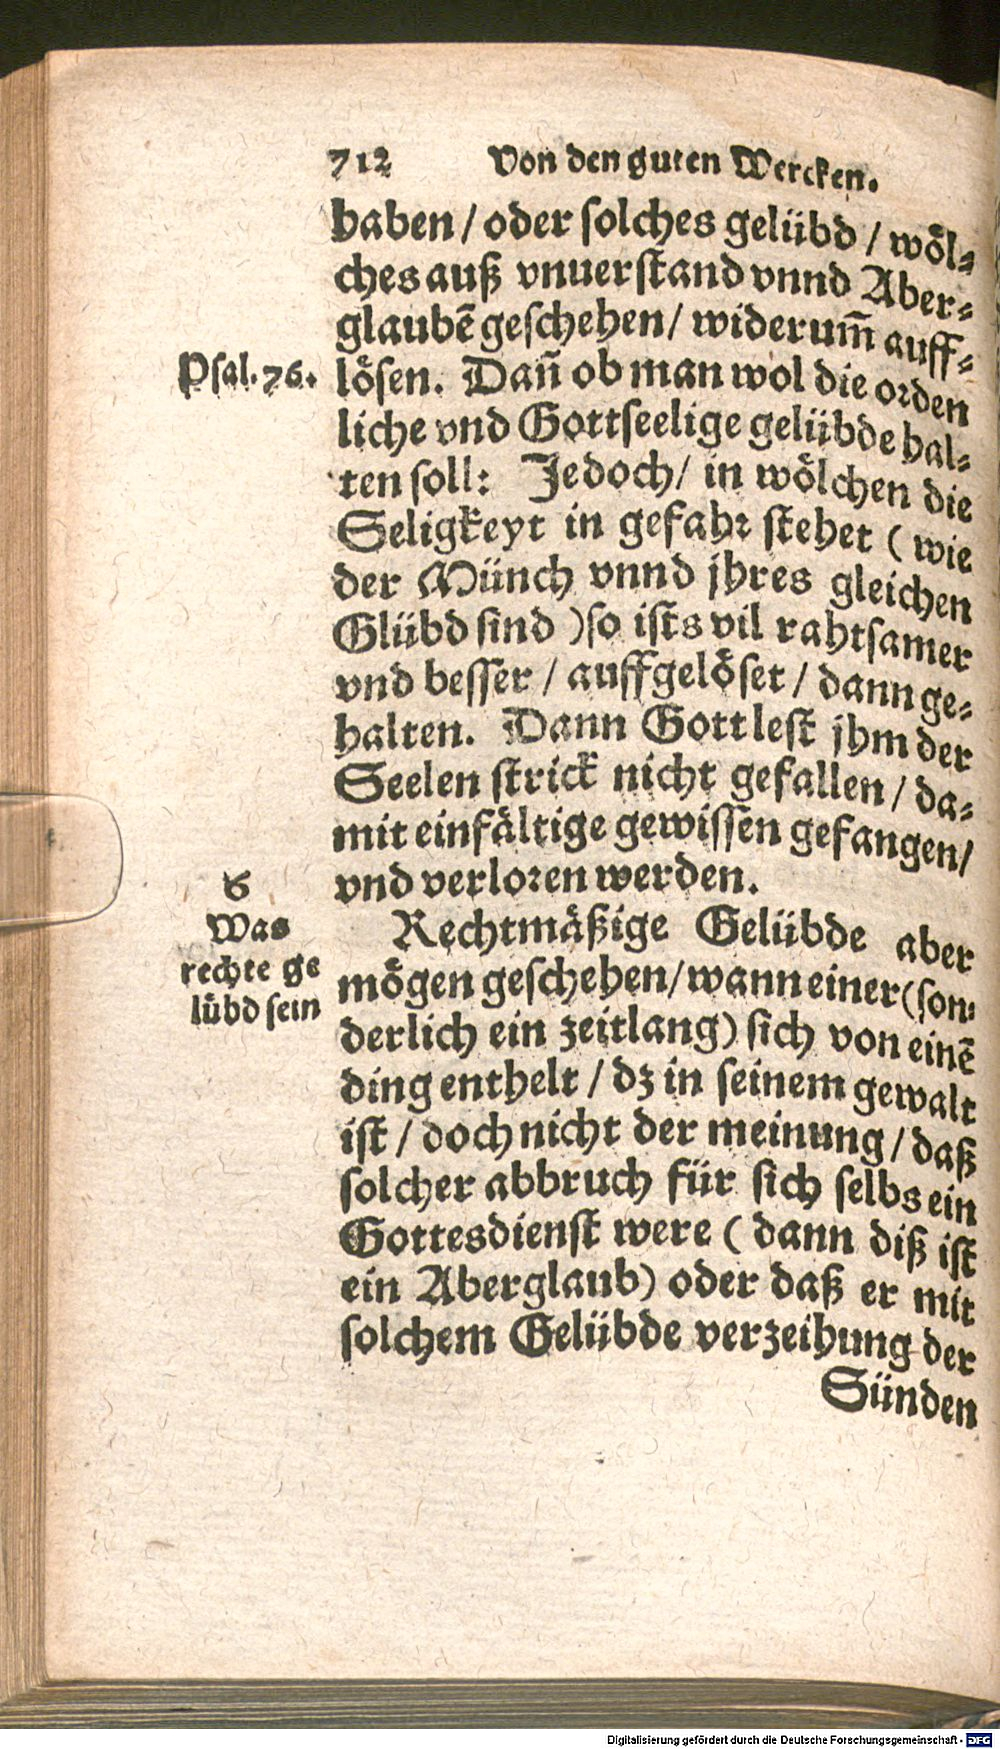 712 Von den guten Wercken.
haben / oder solches gelübd / wöl⸗
ches auß vnuerstand vnnd Aber⸗
glaubẽ geschehen / widerum̃ auff⸗
Psal. 76. lösen. Dañ ob man wol die orden
liche vnd Gottseelige gelübde hal⸗
ten soll: Jedoch / in wölchen die
Seligkeyt in gefahr stehet ( wie
der Münch vnnd jhres gleichen
Glübd sind ) so ists vil rahtsamer
vnd besser / auffgelöset / dann ge⸗
halten. Dann Gott lest jhm der
Seelen strick nicht gefallen / da⸗
mit einfältige gewissen gefangen /
vnd verloren werden.
6
Was
rechte ge
lübd sein
Rechtmäßige Gelübde aber
mögen geschehen / wann einer (son⸗
derlich ein zeitlang) sich von einẽ
ding enthelt / dz in seinem gewalt
ist / doch nicht der meinung / daß
solcher abbruch für sich selbs ein
Gottesdienst were ( dann diß ist
ein Aberglaub) oder daß er mit
solchem Gelübde verzeihung der
Sünden
Digitalisierung gefördert durch die Deutsche Forschungsgemeinschaft - DFG